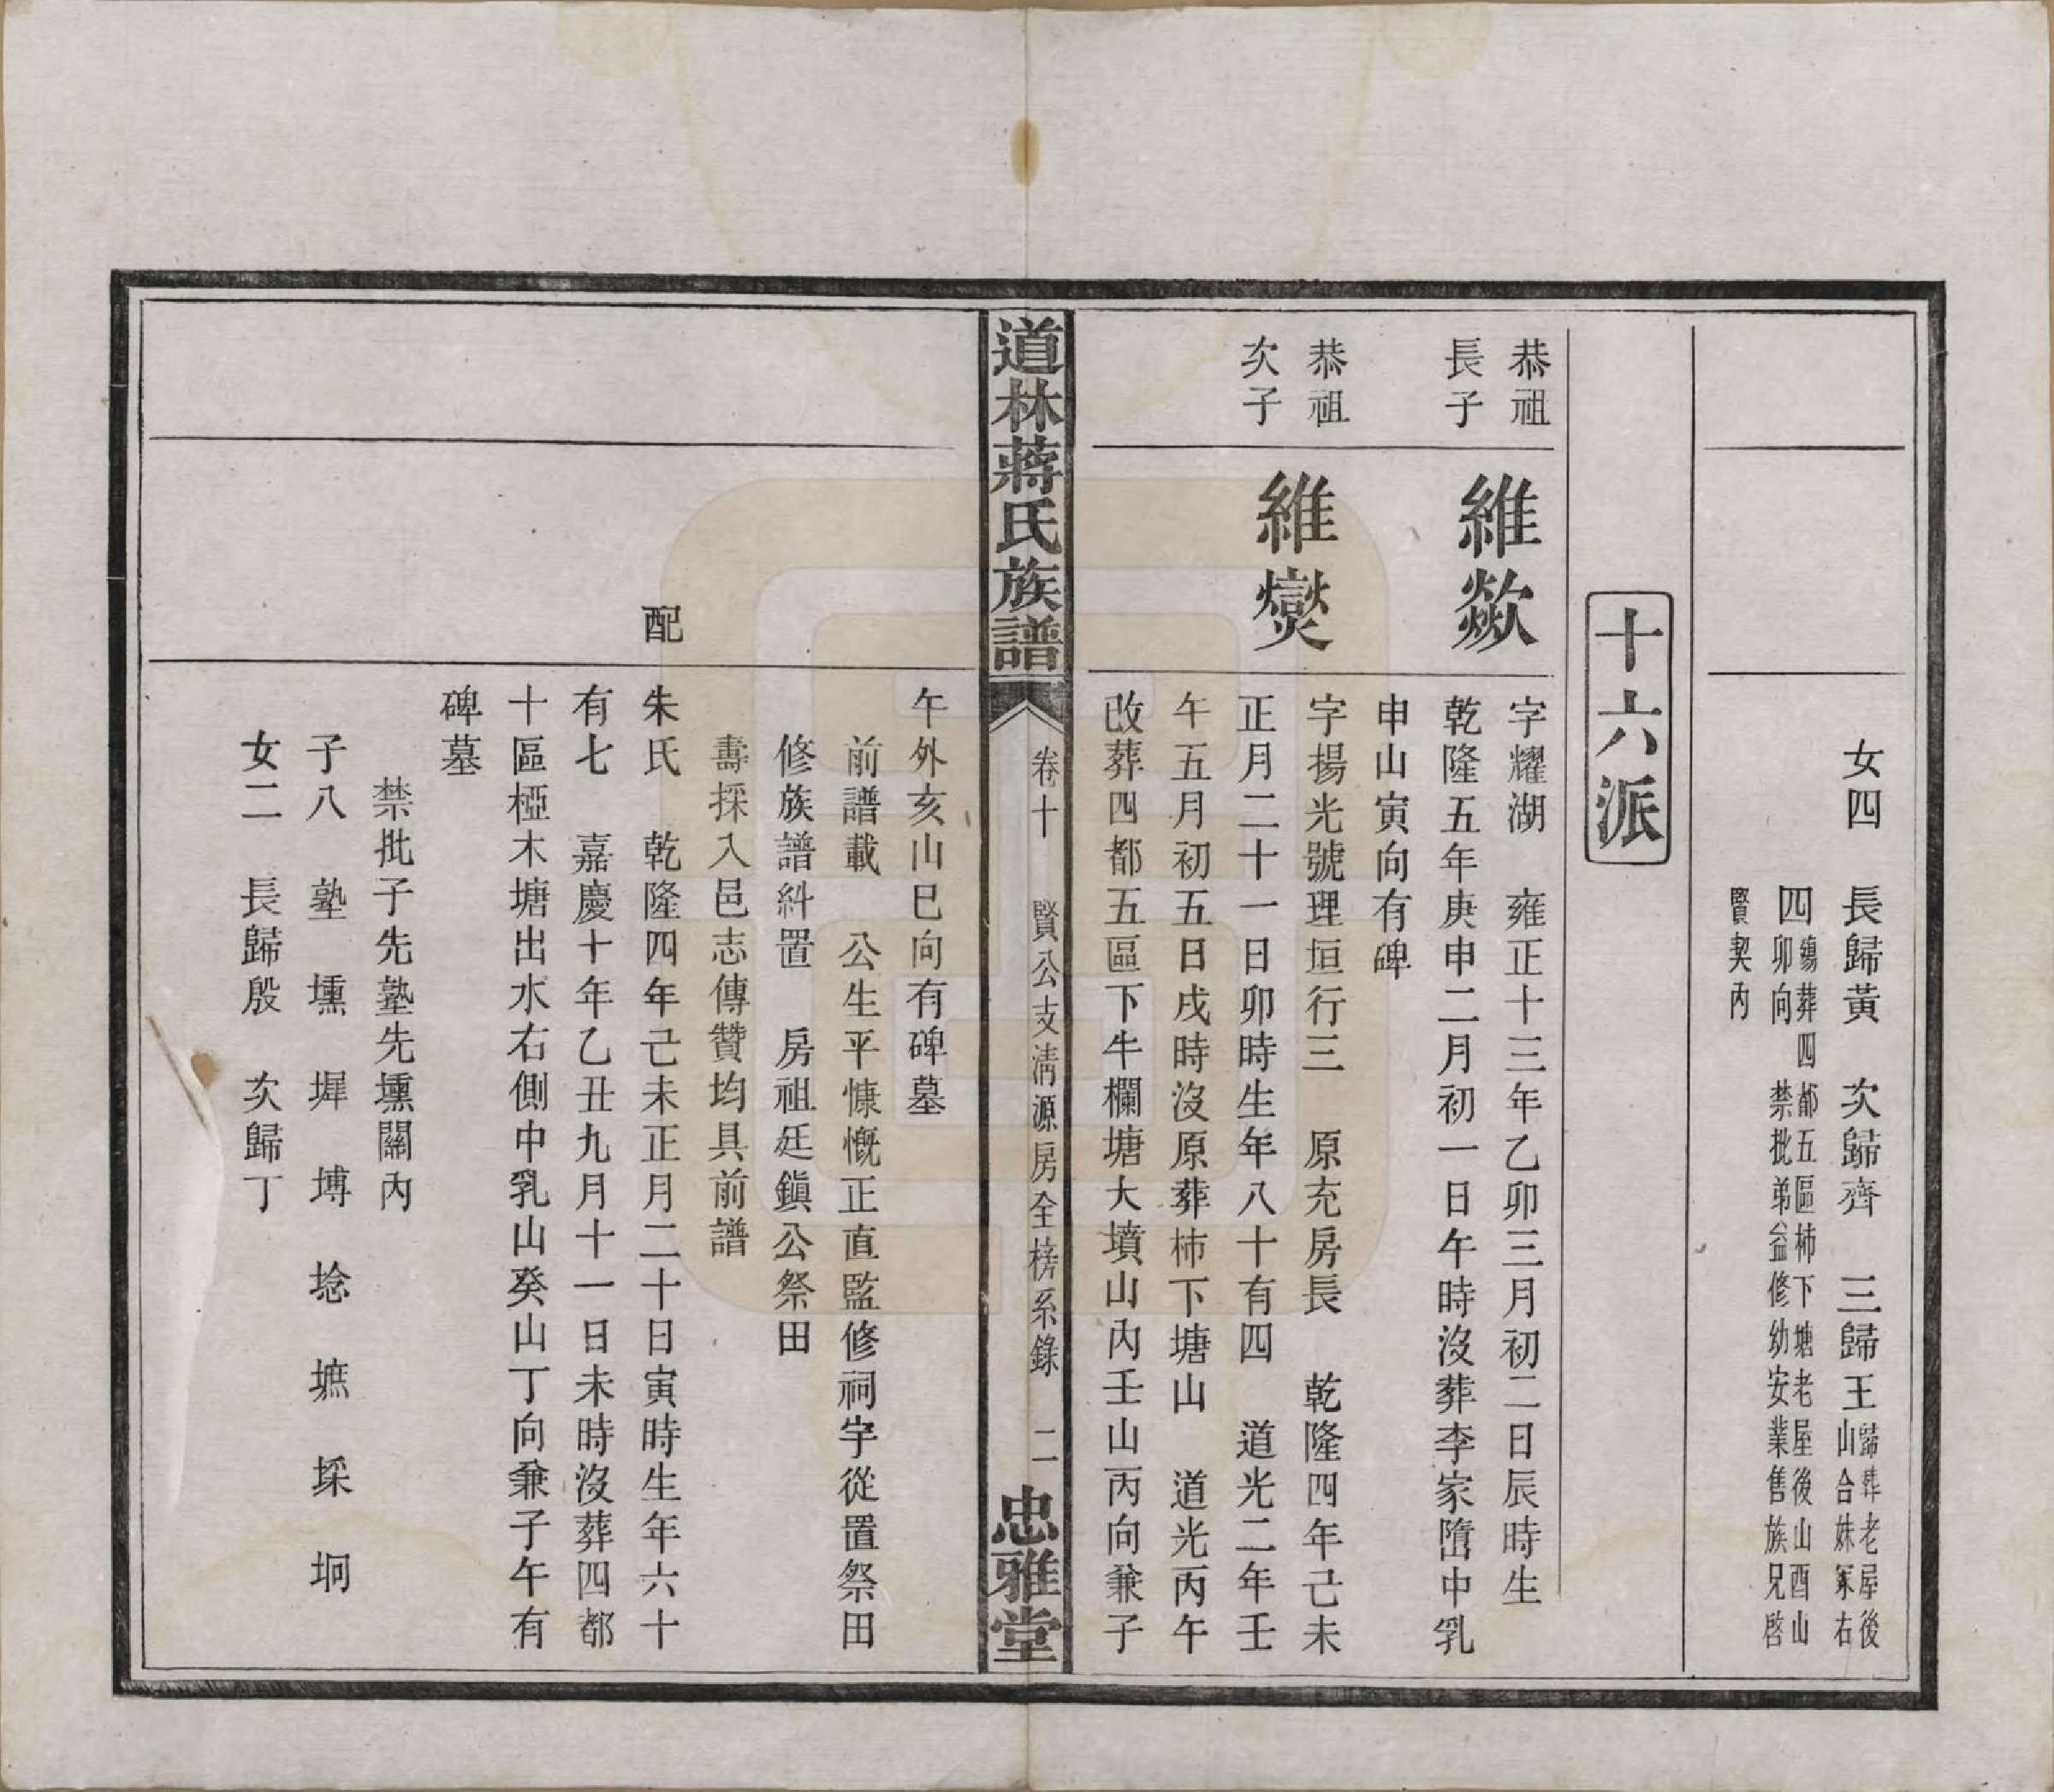 女四　長歸黃　次歸齊　三歸王歸葬老屋後
山合妹冢右
四殤葬四都五區柿下塘老屋後山酉山
卯向　禁批弟益修幼安業售族兄啓
賢契內
十六派
恭祖
長子
維歘
字耀湖　雍正十三年乙卯三月初二日辰時生
乾隆五年庚申二月初一日午時沒葬李家嶞中乳
申山寅向有碑
恭祖
次子
維燮
字揚光號理垣行三　原充房長　乾隆四年己未
正月二十一日卯時生年八十有四　道光二年壬
午五月初五日戌時沒原葬柿下塘山　道光丙午
改葬四都五區下牛欄塘大墳山內壬山丙向兼子
道林蔣氏族譜　卷十　賢公支清源房全榜系錄　二　忠雅堂
午外亥山巳向有碑墓
前譜載　公生平慷慨正直監修祠宇從置祭田
修族譜糾置　房祖廷鎭公祭田
壽採入邑志傳贊均具前譜
配
朱氏　乾隆四年己未正月二十日寅時生年六十
有七　嘉慶十年乙丑九月十一日未時沒葬四都
十區椏木塘出水右側中乳山癸山丁向兼子午有
碑墓
禁批子先塾先壎鬮內
子八　塾　壎　墀　塼　埝　墌　埰　坰
女二　長歸殷　次歸丁